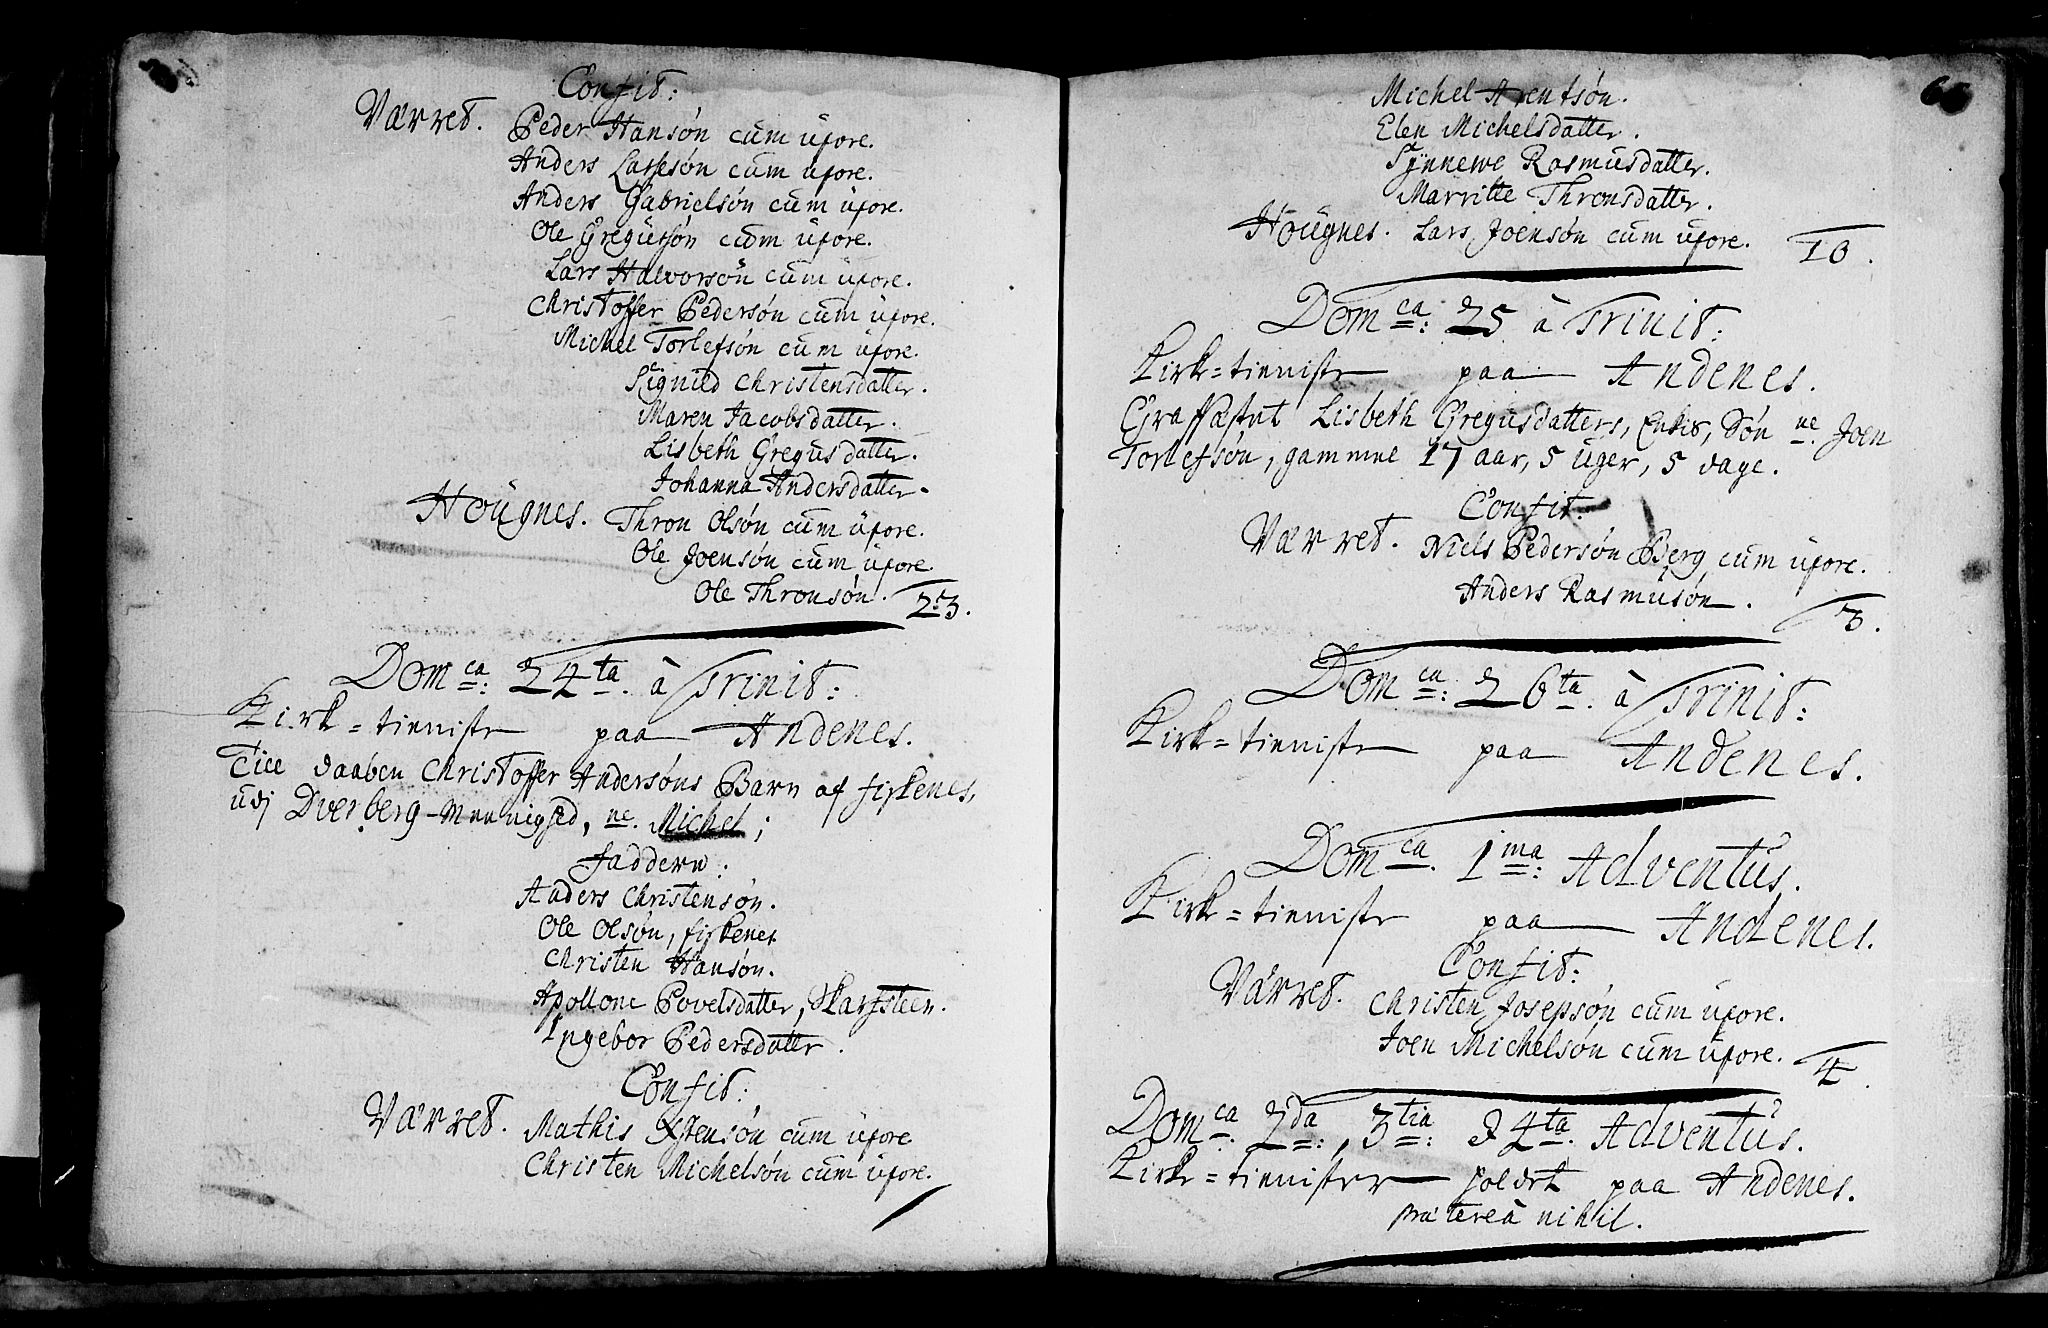 Confit:
Værret. Peder Hansøn cum uxore.
Anders Larsesøn cum uxore.
Anders Gabrielsøn cum uxore.
Ole Gregusøn cum uxore.
Lars Halvorsøn cum uxore.
Christoffer Pedersøn cum uxore.
Michel Torlefsøn cum uxore.
Signild Christensdatter.
Maren Jacobsdatter.
Lisbeth Gregusdatter.
Johanna Andersdatter.
Hougnes. Thron Olsøn cum uxore.
Ole Joensøn cum uxore.
Ole Thronsøn. 23.
Dom ca: 24 ta. à Trinit:
Kirke=tieniste paa Andenes.
Till daaben Christoffer Andersøns Barn af fiskenes,
udj Dverberg-Meenighed, ne. Michel;
Faddern:
Anders Christensøn.
Ole Olsøn, fiskenes
Christen Hansøn.
Apollone Povelsdatter, Skarfsteen.
Ingebor Pedersdatter.
Confit:
Værret. Mathis Ostensøn cum uxore
Christen Michelsøn cum uxore.
66
Michel Arentsøn.
Elen Michelsdatter.
Synnewe Rasmusdatter.
Marritte Thronsdatter.
Hougnes. Lars Joensøn cum uxore. 10.
Dom ca: 25 à Trinit:
Kirke=tieniste paa Andenes.
Graffæstet Lisbeth Gregusdatters, Enkes, Søn ne. Joen
Torlefsøn, gammel 17 aar, 5 uger, 5 dage.
Confit:
Værret. Niels Pedersøn Berg cum uxore.
Anders Rasmusøn. 3.
Dom ca: 26 ta. à Trinit:
Kirke=tieniste paa Andenes.
Dom ca. 1 ma: Adventus.
Kirke=tieniste paa Andenes.
Confit:
Værret. Christen Josepsøn cum uxore.
Joen Michelsøn cum uxore. 4.
Dom ca. 2 da:, 3 tia: & 4 ta. Adventus.
Kirke=tienister holdet paa Andenes.
præterea nihil.